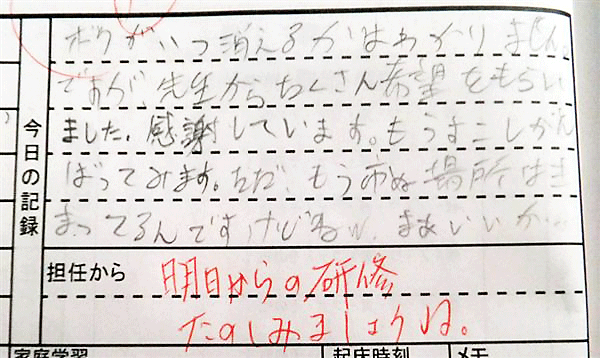 今日の記録
ボクがいつ消えるかはわかりません。
ですが、先生からたくさん希望をもらい
ました。感謝しています。もうすこしがん
ばってみます。ただ、もう市ぬ場所はき
まってるんですけどねw、まあいいか…
担任から
明日からの研修
たのしみましょうね。
家庭学習
起床時刻
メモ